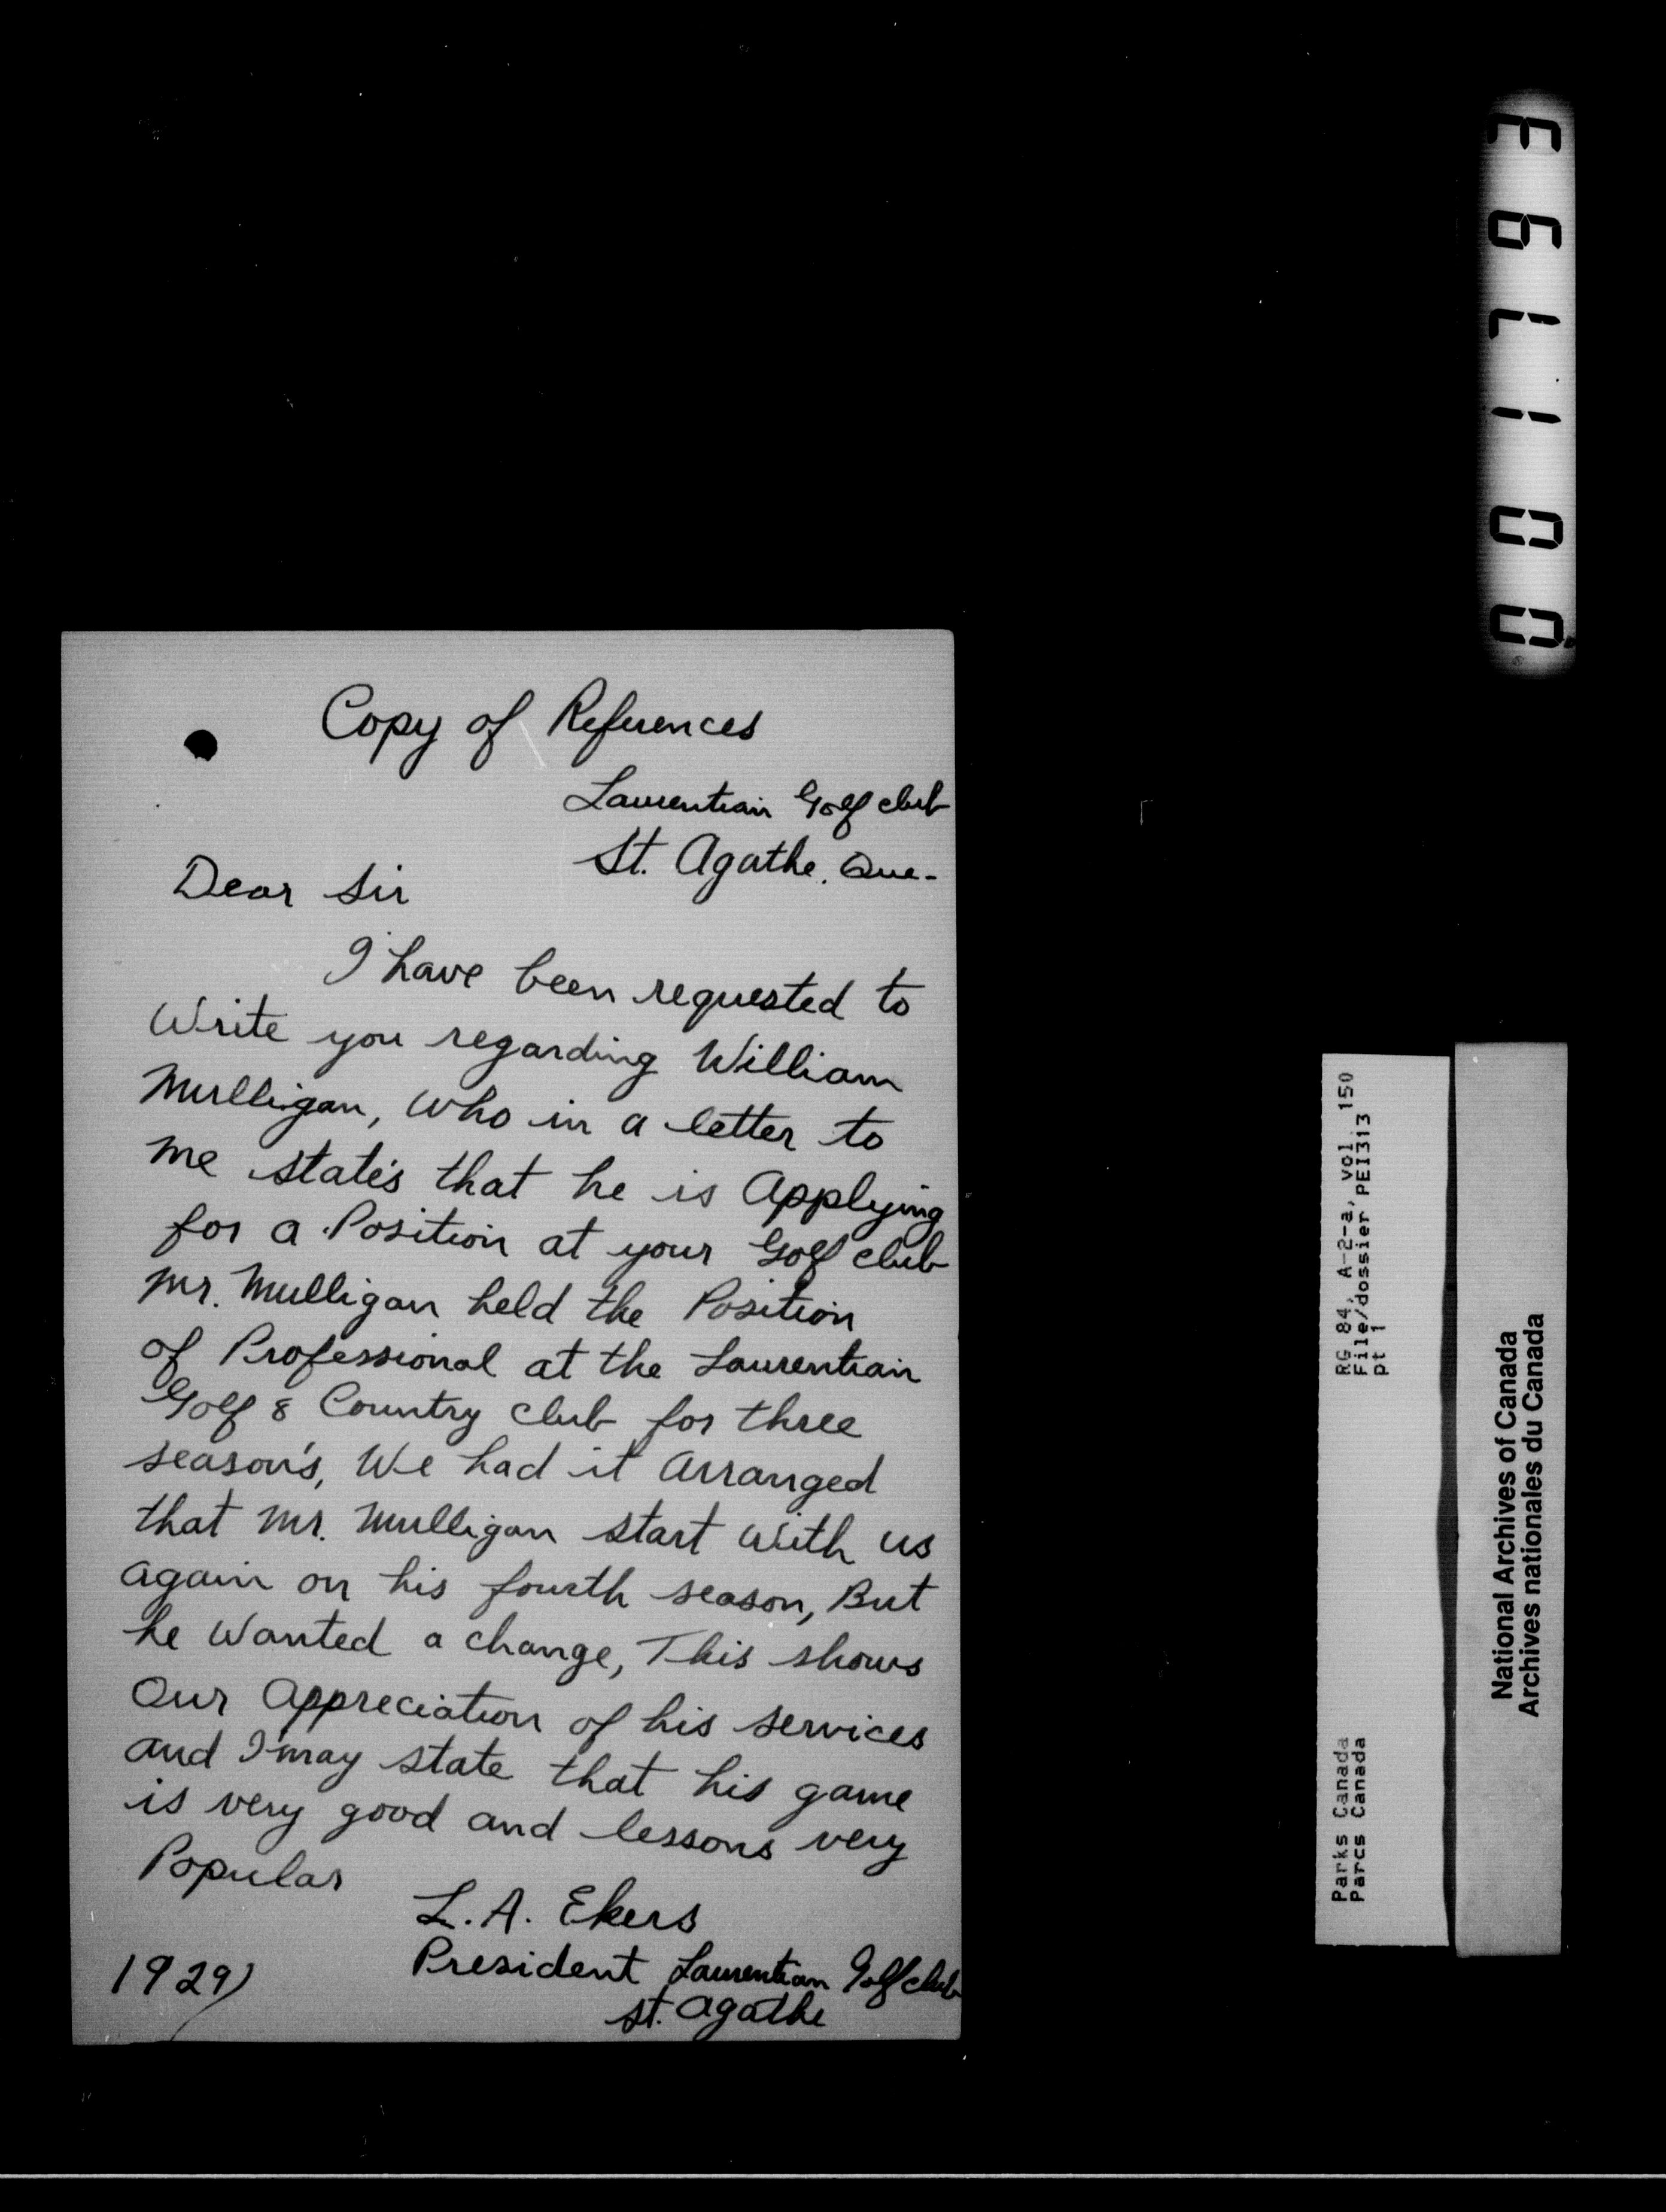 Copy of References
Laurentian Golf club
St. Agathe. Que-
Dear Sir
I have been requested to
Write you regarding William
Mulligan, Who in a letter to
me state's that he is Applying
for a Position at your Golf club
Mr. Mulligan held the Position
of Professional at the Laurentian
Golf & Country club for three
season's, We had it Arranged
that Mr. Mulligan start With us
again on his fourth season, But
he Wanted a change, This shows
Our Appreciation of his services
and I may state that his game
is very good and lessons very
Popular
L.A. Ekers
President Laurentian Golf club
St. Agathe
1929)
001793
RG 84, A-2-a, vol. 150
File/dossier PEI313
pt 1
Parks Canada
Parcs Canada
National Archives of Canada
Archives nationales du Canada